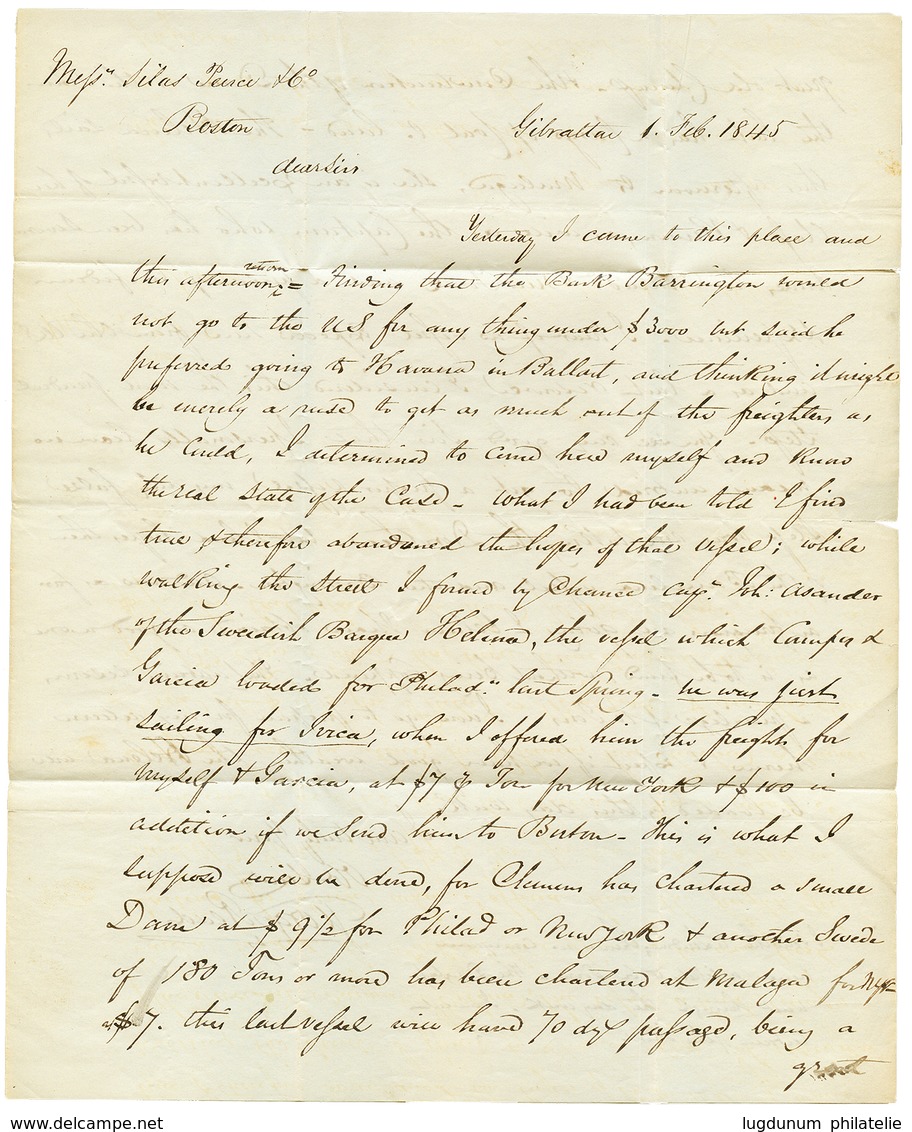 Messrs. Silas Peirce & Co
Boston
Gibraltar 1. Feb. 1845
dear Sirs
Yesterday I came to this place and
return
this afternoon = Finding that the Bark Barrington would
not go to the US for any thing under $3000 but said he
preferred going to Havana in Ballast, and thinking it might
be merely a ruse to get as much out of the freighters as
he could, I determined to come here myself and know
the real state of the Case - what I had been told I find
true & therefore abandoned the hopes of that vessel; while
walking the street I found by Chance Capn. Joh: Asander
of the Swedish Barque Helena, the vessel which Crumpes &
Garcia loaded for Philada. last spring - he was just
sailing for Ivica, when I offered him the freight for
myself & Garcia, at $7 p Ton for New York & $100 in
addition if we send him to Boston - This is what I
suppose will be done, for Clemens has chartered a small
Dane at $ 9½ for Philad or New York & another Swede
of 180 Tons or more has been chartered at Malaga for NYk
at $7. this last vessel will have 70 dys passage, being a
great
www.delcampe.net
lugdunum philatelie